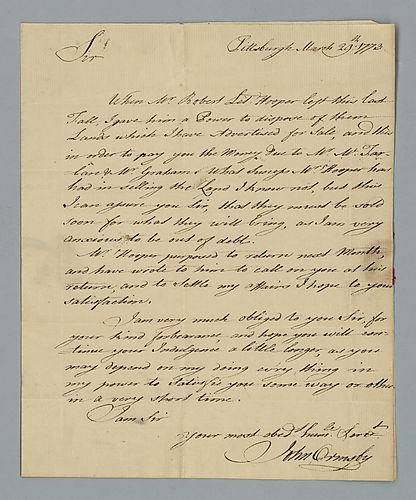 Sir
Pittsburgh March 29th 1773
When Mr. Robert Let Hooper left this last
Fall, I gave him a Power to dispose of them
Lands which I have Advertised for Sale, and this
in order to pay you the Money due to Mr. Mc. Far-
lane & Mr. Graham. What Success Mr. Hooper has
had in selling the Land I know not, but this
I can assure you Sir, that they must be sold
soon for what they will bring, as I am very
anxious to be out of debt.
Mr. Hooper purposed to return next Month,
and have wrote to him to call on you at his
return, and to settle my affairs I hope to your
satisfaction.
I am very much obliged to you Sir, for
your kind forbearance, and hope you will con-
tinue your Indulgence a little longer, as you
may depend on my doing every thing in
my power to Satisfie you some way or other
in a very short time.
I am Sir
Your most obedt. hume. Servt.
John Ormsby